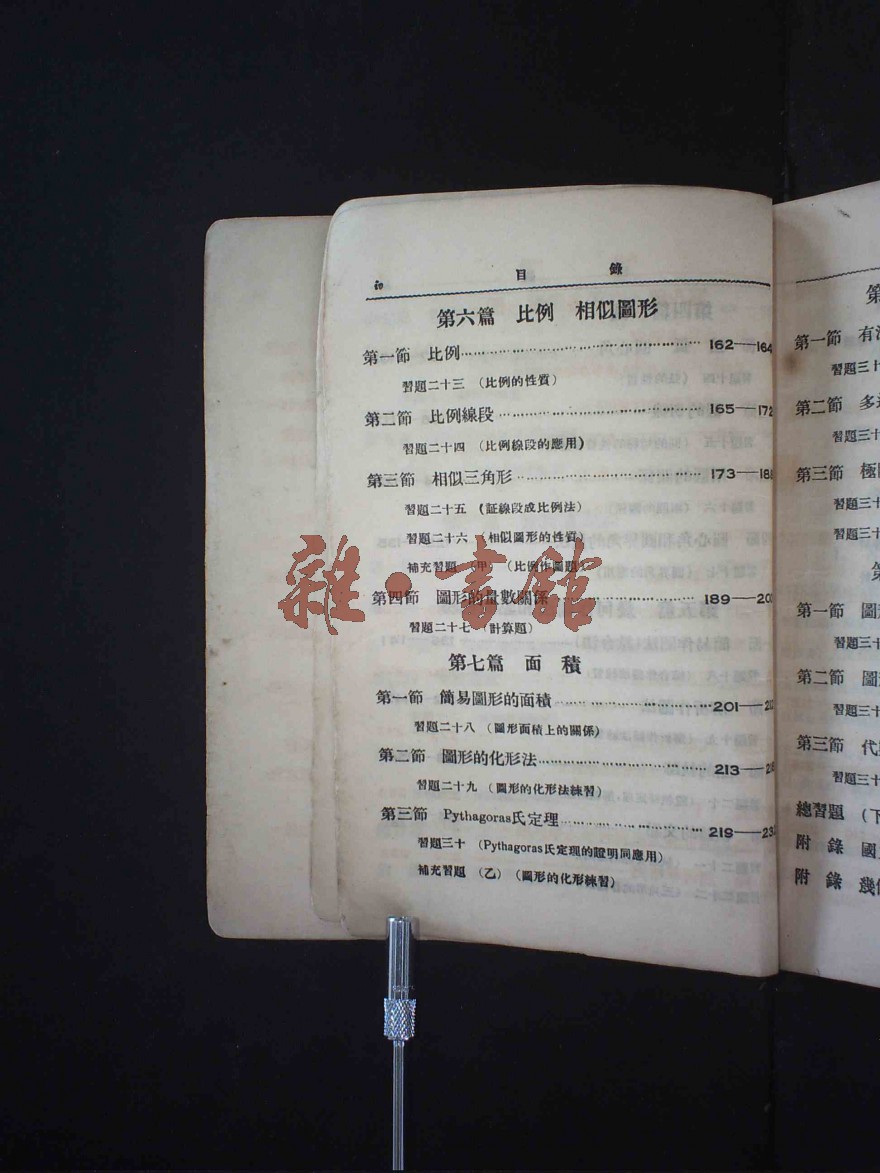 目錄
第六篇 比例 相似圖形
第一節 比例 162—164
習題二十三 (比例的性質)
第二節 比例線段 165—172
習題二十四 (比例線段的應用)
第三節 相似三角形 173—18
習題二十五 (証線段成比例法)
習題二十六 (相似圖形的性質)
補充習題 (甲) (比例作圖題)
第四節 圖形的量數關係 189—20
習題二十七 (計算題)
第七篇 面積
第一節 簡易圖形的面積 201—2
習題二十八 (圖形面積上的關係)
第二節 圖形的化形法 213—2
習題二十九 (圖形的化形法練習)
第三節 Pythagoras氏定理 219—23
習題三十 (Pythagoras氏定理的證明同應用)
補充習題 (乙) (圖形的化形練習)
雜·書館
第
第一節 有
習題三十
第二節 多
習題三十
第三節 極
習題三十
習題三十
第
第一節 圖
習題三十
第二節 圖
習題三十
第三節 代
習題三十
總習題 (下
附錄 國
附錄 幾